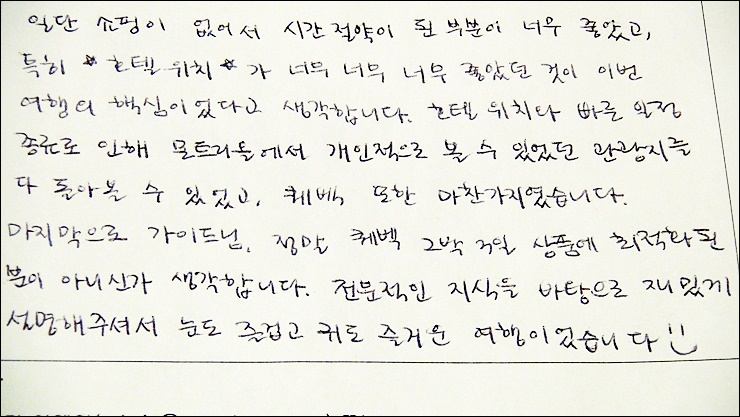 일단 쇼핑이 없어서 시간절약이 된 부분이 너무 좋았고,
특히 *호텔위치*가 너무 너무 너무 좋았던 것이 이번
여행의 핵심이었다고 생각합니다. 호텔 위치와 빠른 일정
종료로 인해 몬트리올에서 개인적으로 볼 수 있었던 관광지를
다 돌아볼 수 있었고, 퀘벡 또한 마찬가지였습니다.
마지막으로 가이드님, 정말 퀘벡 2박 3일 상품에 최적화된
분이 아니신가 생각합니다. 전문적인 지식을 바탕으로 재밌게
설명해주셔서 눈도 즐겁고 귀도 즐거운 여행이었습니다 :)